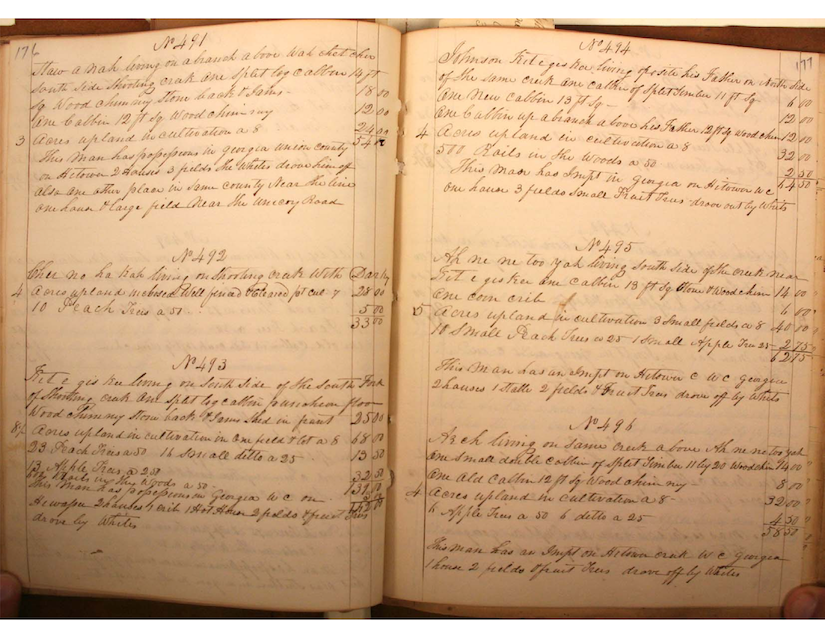 176
No 491
living on a branch above Wah chut cher
South Side Shooting creek One Split log Cabbin 14 ft
Sq Wood chimny Stone back & Jams 18 00
One Cabbin 12 ft Sq Wood chimny 12 00
3 Acres upland in cultivation a 8 24 00
54
This Man has possessions in Georgia Union County
on Hitown 2 Houses 3 fields the Whites drove him of
also one other place in Same County Near the line
one house & large field Near the Unicoy Road
No 492
living on Shooting creek With Darky
4 Acres upland Well fenced & Cleared pt cul 7 28 00
10 Peach Trees a 50 5 00
33 00
No 493
Ket e gis kee living on South Side of the South Fork
of Shooting creek One Split log Cabbin puncheon floor
Wood Chimny Stone back & Jams Shed in front 25 00
8½ Acres upland in cultivation in One field & lot a 8 68 00
23 Peach Trees a 50 16 Small ditto a 25 13 50
13 Apple Trees a 250 32 50
Rails in the Woods a 50
This Man has possessions in Georgia W C on
Hiwassee 2 houses 1 crib 1 Hot House 2 fields & fruit Trees
drove by Whites
177
No 494
Johnson Ket e gis kee living oposite his Father on North Side
of the Same creek One cabbin of Split Timber 11 ft Sq 6 00
One New Cabbin 13 ft Sq 12 00
One Cabbin up a branch above his Father 12 ft Sq Wood chim 12 00
4 Acres upland in cultivation a 8 32 00
500 Rails in the Woods a 50 2 50
64 50
This Man has Impt in Georgia on Hitown W C
one house 3 fields Small Fruit Trees drove out by Whites
No 495
Ah ne ne too yah living South side of the creek near
Ket e gis kee One Cabbin 13 ft Sq Stone & Wood chim 14 00
One corn crib 6 00
5 Acres upland in cultivation 3 Small fields a 8 40 00
10 Small Peach Trees a 25 1 Small Apple Tree 25 2 75
62 75
This Man has an Impt on Hitown C W C Georgia
2 houses 1 Stable 2 fields & Fruit Trees drove off by Whites
No 496
Arch living on Same Creek above Ah ne ne too yah
One Small double Cabbin of Split Timber 11 by 20 Wood chim 14 00
One Old Cabbin 12 ft Sq Wood chimny 8 00
4 Acres upland in cultivation a 8 32 00
6 Apple Trees a 50 6 ditto a 25 4 50
58 50
This man has an Impt on Hitown Creek W C Georgia
1 house 2 fields & fruit Trees drove off by Whites